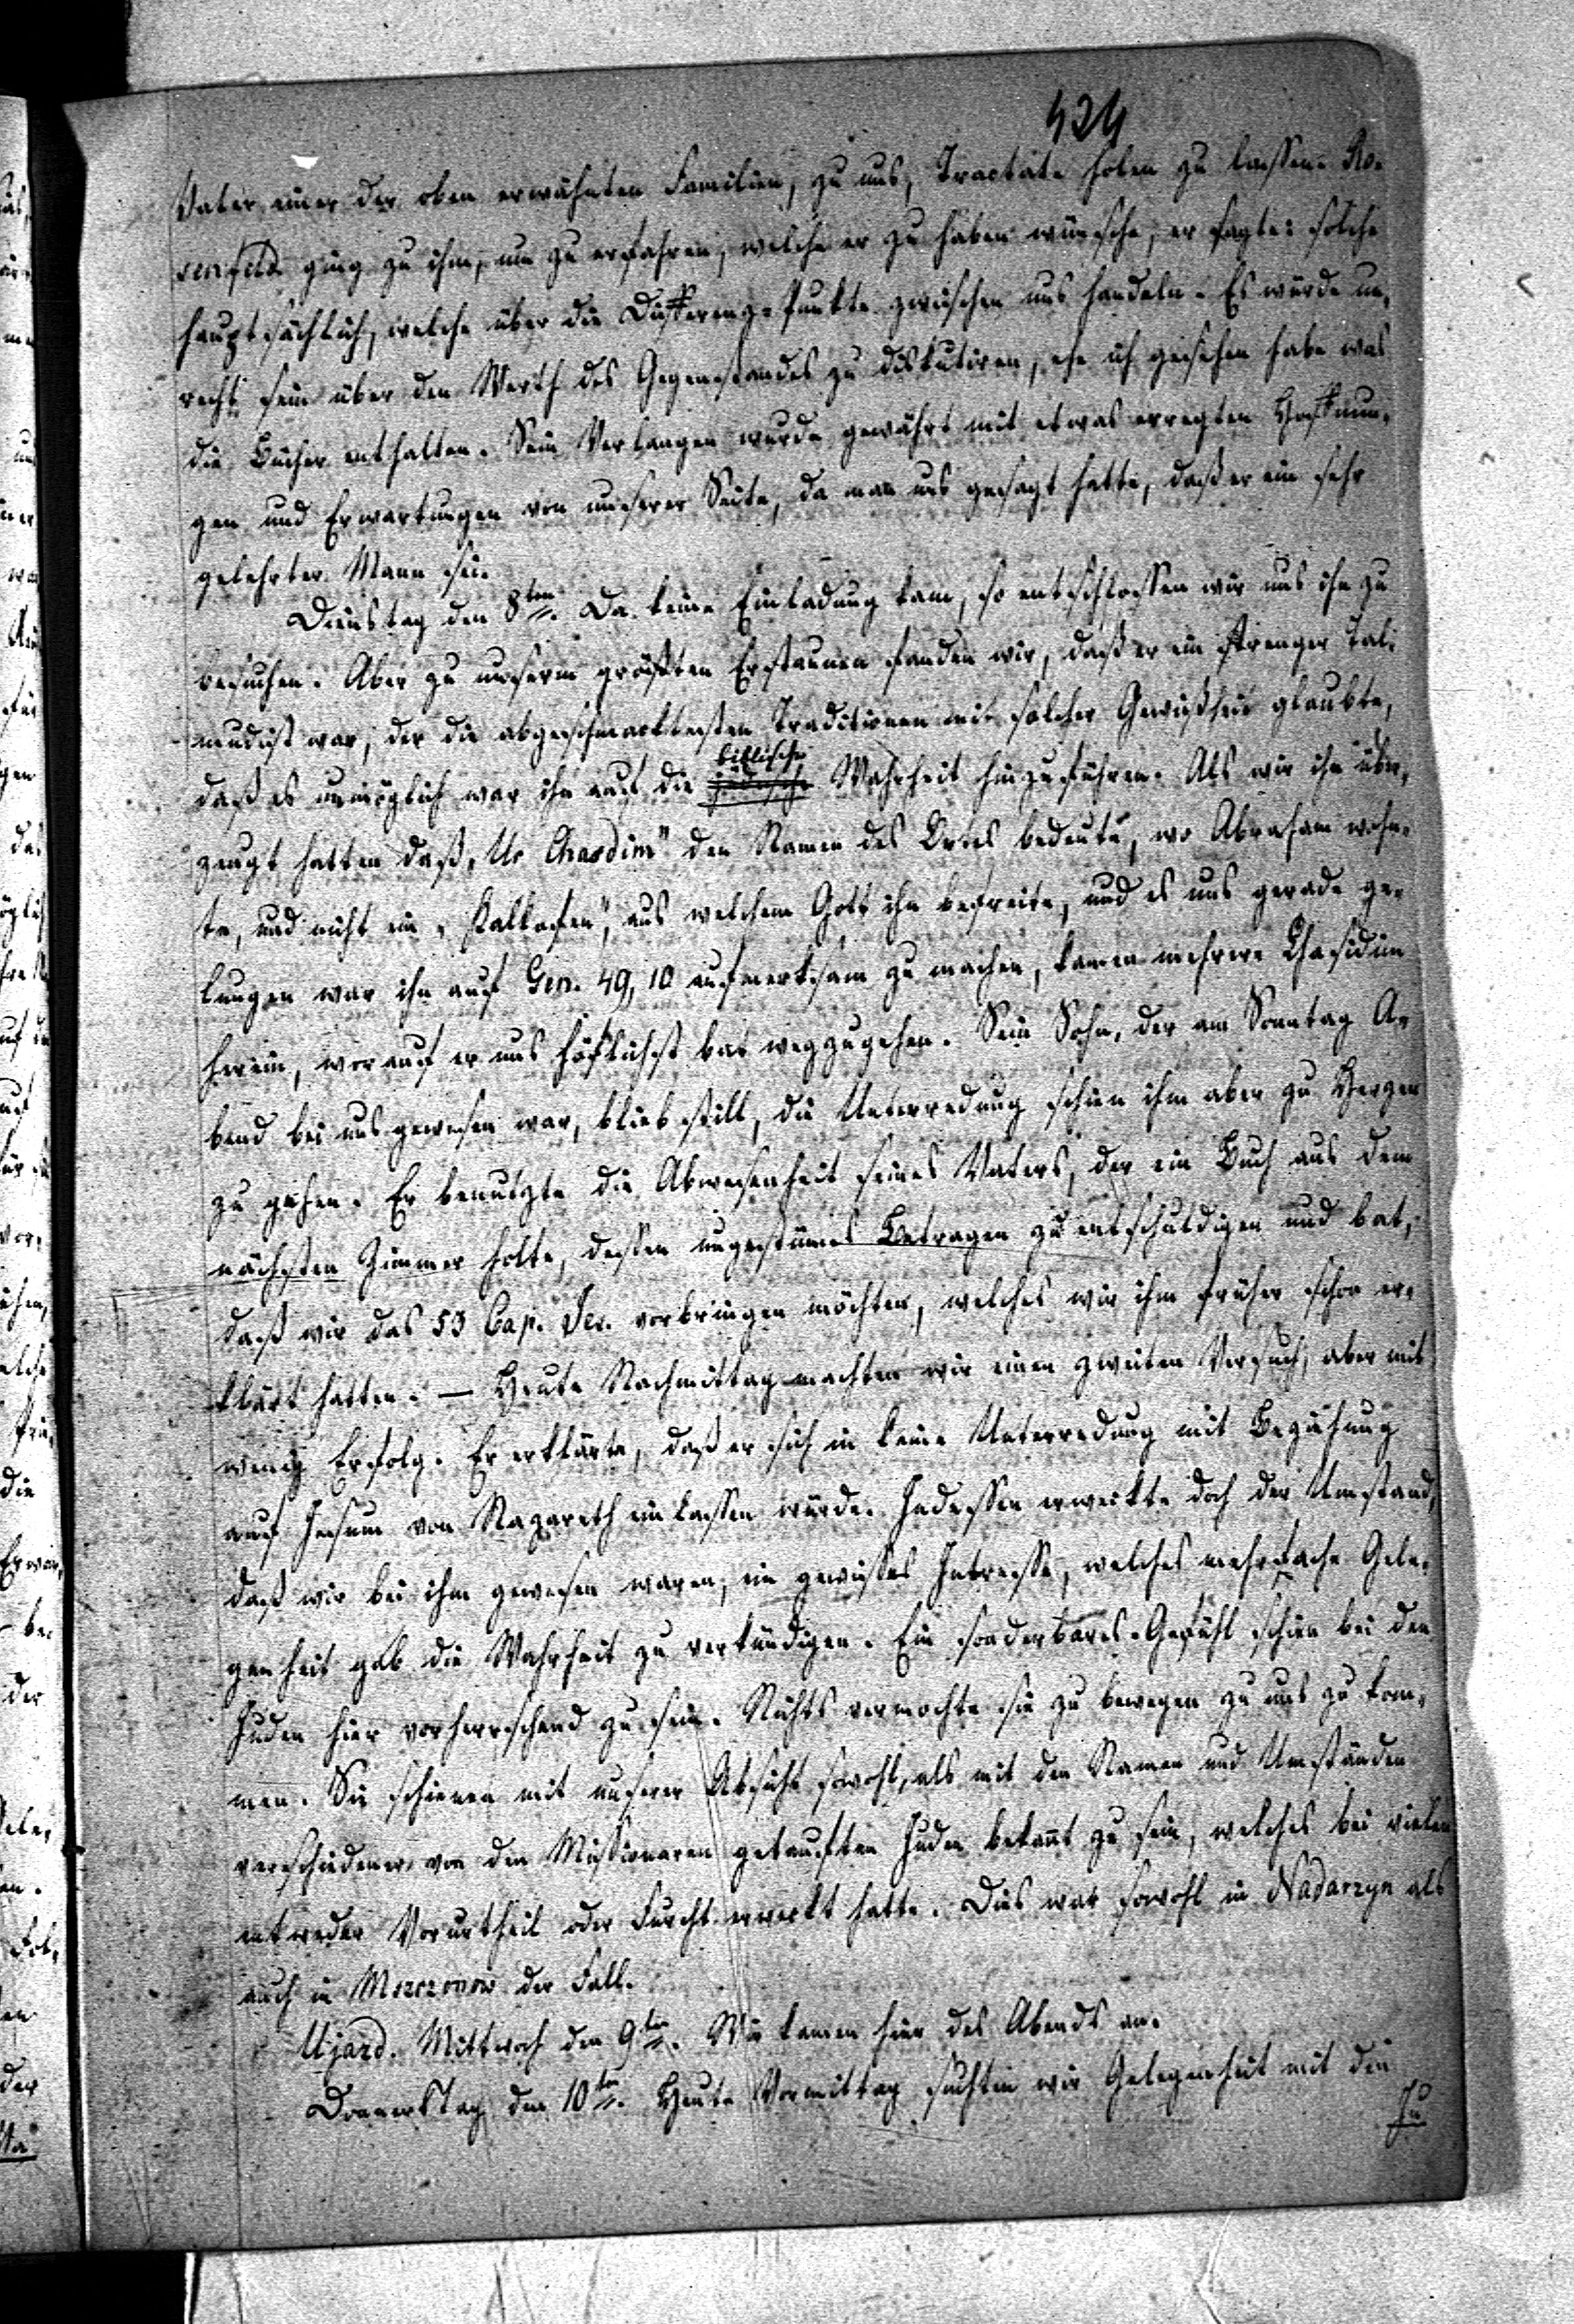 424
Vater einer der oben erwähnten Familien, zu uns, Tractate holen zu lassen. Ro-
senfeld ging zu ihm, um zu erfahren, welche er zu haben wünsche, er sagte: solche
hauptsächlich, welche über die Differenz-Punkte zwischen uns handeln. Es würde un-
recht sein über den Werth des Gegenstandes zu diskutiren, ehe ich gesehen habe was
die Bücher enthalten. Sein Verlangen wurde gewährt mit etwas erregten Hoffnun-
gen und Erwartungen von unserer Seite, da man uns gesagt hatte, daß er ein sehr
gelehrter Mann sei.
Dienstag den 8ten. Da keine Einladung kam, so entschlossen wir uns ihn zu
besuchen. Aber zu unserm größten Erstaunen fanden wir, daß er ein strenger Tal-
mudist war, der die abgeschmacktesten Traditionen mit solcher Gewißheit glaubte,
daß es unmöglich war ihn auf die jüdische biblische Wahrheit hinzuführen. Als wir ihn über-
zeugt hatten daß „Ur Chasdim" den Namen des Ortes bedeute, wo Abraham wohn-
te, und nicht ein „Kalkofen", aus welchem Gott ihn befreite, und es uns gerade ge-
lungen war ihn auf Gen. 49, 10 aufmerksam zu machen, kamen mehrere Chasidim
herein, worauf er uns höflichst bat wegzugehen. Sein Sohn, der am Sonntag A-
bend bei uns gewesen war, blieb still, die Unterredung schien ihm aber zu Herzen
zu gehen. Er benutzte die Abwesenheit seines Vaters, der ein Buch aus dem
nächsten Zimmer holte, dessen ungestümes Betragen zu entschuldigen und bat,
daß wir das 53 Cap. Jes. vorbringen möchten, welches wir ihm früher schon er-
klärt hatten. — Heute Nachmittag machten wir einen zweiten Versuch, aber mit
wenig Erfolg. Er erklärte, daß er sich in keine Unterredung mit Beziehung
auf Jesum von Nazareth einlassen würde. Indessen erweckte doch der Umstand,
daß wir bei ihm gewesen waren, ein gewisses Interesse, welches mehrfache Gele-
genheit gab die Wahrheit zu verkündigen. Ein sonderbares Gefühl schien bei den
Juden hier vorherrschend zu sein. Nichts vermochte sie zu bewegen zu uns zu kom-
men. Sie schienen mit unserer Absicht sowohl, als mit den Namen und Umständen
verschiedener von den Missionaren getauften Juden bekannt zu sein, welches bei vielen
entweder Vorurtheil oder Furcht erweckt hatte. Dies war sowohl in Nadarzyn als
auch in Mszczonow der Fall.
Ujazd. Mittwoch den 9ten. Wir kamen hier des Abends an.
Donnerstag den 10ten. Heute Vormittag suchten wir Gelegenheit mit den
Ju